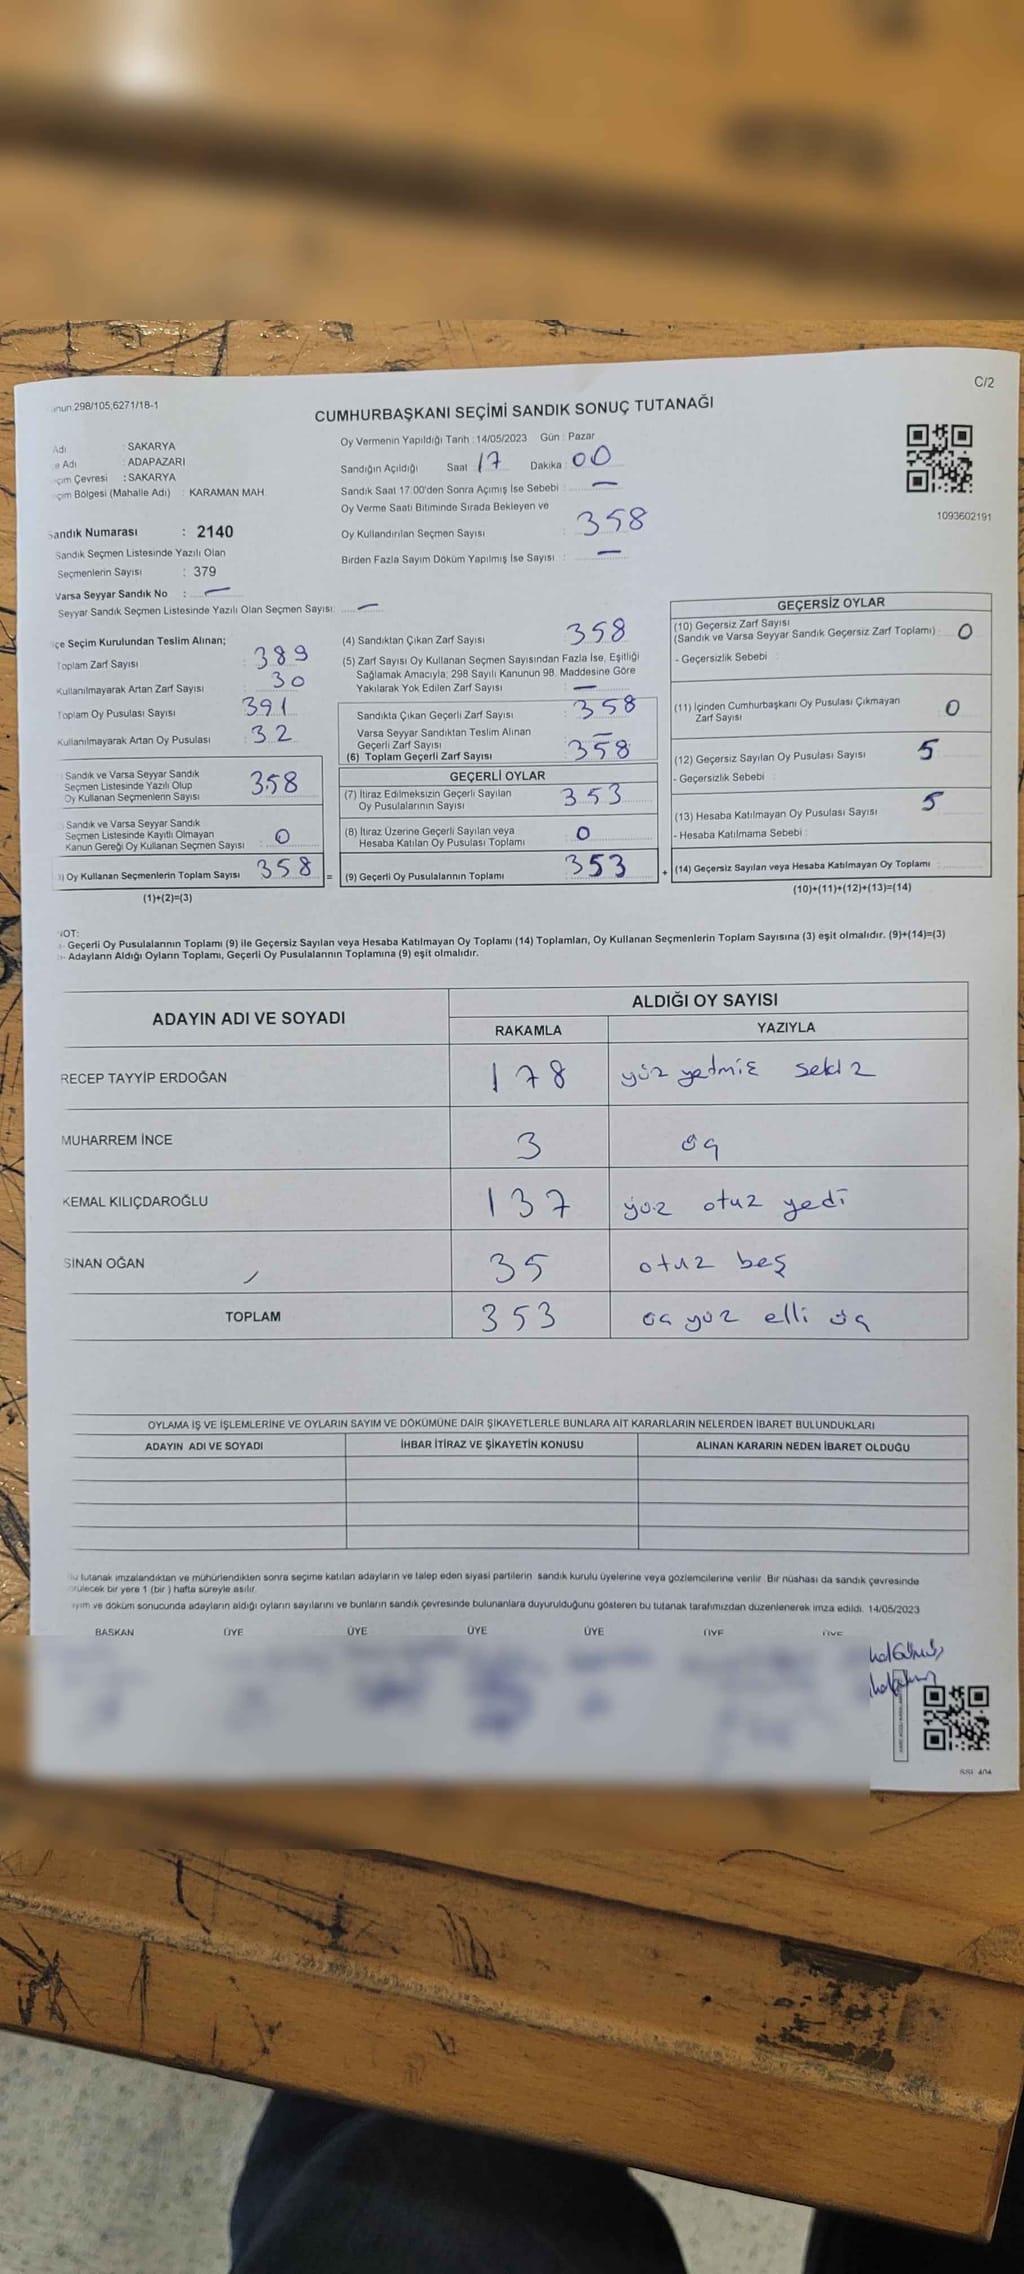 C/2
298/105,6271/18-1
CUMHURBAŞKANI SEÇİMİ SANDIK SONUÇ TUTANAĞI
Adı : SAKARYA
Adı : ADAPAZARI
Çevresi : SAKARYA
Bölgesi (Mahalle Adı) : KARAMAN MAH.
Oy Vermenin Yapıldığı Tarih : 14/05/2023 Gün : Pazar
Sandığın Açıldığı Saat 17 Dakika : 00
Sandık Saat 17:00'den Sonra Açımış İse Sebebi : —
Oy Verme Saati Bitiminde Sırada Bekleyen ve
Oy Kullandırılan Seçmen Sayısı : 358
Birden Fazla Sayım Döküm Yapılmış İse Sayısı : —
1093602191
Sandık Numarası : 2140
Sandık Seçmen Listesinde Yazılı Olan
Seçmenlerin Sayısı : 379
Varsa Seyyar Sandık No : —
Seyyar Sandık Seçmen Listesinde Yazılı Olan Seçmen Sayısı: —
Seçim Kurulundan Teslim Alınan;
Toplam Zarf Sayısı : 389
Kullanılmayarak Artan Zarf Sayısı : 30
Toplam Oy Pusulası Sayısı : 391
Kullanılmayarak Artan Oy Pusulası : 32
Sandık ve Varsa Seyyar Sandık
Seçmen Listesinde Yazılı Olup
Oy Kullanan Seçmenlerin Sayısı : 358
Sandık ve Varsa Seyyar Sandık
Seçmen Listesinde Kayıtlı Olmayan
Kanun Gereği Oy Kullanan Seçmen Sayısı : 0
Oy Kullanan Seçmenlerin Toplam Sayısı 358 =
(1)+(2)=(3)
(4) Sandıktan Çıkan Zarf Sayısı 358
(5) Zarf Sayısı Oy Kullanan Seçmen Sayısından Fazla İse, Eşitliği
Sağlamak Amacıyla; 298 Sayılı Kanunun 98. Maddesine Göre
Yakılarak Yok Edilen Zarf Sayısı : —
Sandıkta Çıkan Geçerli Zarf Sayısı : 358
Varsa Seyyar Sandıktan Teslim Alınan
Geçerli Zarf Sayısı : —
(6) Toplam Geçerli Zarf Sayısı : 358
GEÇERLİ OYLAR
(7) İtiraz Edilmeksizin Geçerli Sayılan
Oy Pusulalarının Sayısı : 353
(8) İtiraz Üzerine Geçerli Sayılan veya
Hesaba Katılan Oy Pusulası Toplamı : 0
(9) Geçerli Oy Pusulalarının Toplamı : 353 +
GEÇERSİZ OYLAR
(10) Geçersiz Zarf Sayısı
(Sandık ve Varsa Seyyar Sandık Geçersiz Zarf Toplamı) : 0
- Geçersizlik Sebebi :
(11) İçinden Cumhurbaşkanı Oy Pusulası Çıkmayan
Zarf Sayısı 0
(12) Geçersiz Sayılan Oy Pusulası Sayısı : 5
- Geçersizlik Sebebi :
(13) Hesaba Katılmayan Oy Pusulası Sayısı : 5
- Hesaba Katılmama Sebebi :
(14) Geçersiz Sayılan veya Hesaba Katılmayan Oy Toplamı :
(10)+(11)+(12)+(13)=(14)
NOT:
Geçerli Oy Pusulalarının Toplamı (9) ile Geçersiz Sayılan veya Hesaba Katılmayan Oy Toplamı (14) Toplamları, Oy Kullanan Seçmenlerin Toplam Sayısına (3) eşit olmalıdır. (9)+(14)=(3)
Adayların Aldığı Oyların Toplamı, Geçerli Oy Pusulalarının Toplamına (9) eşit olmalıdır.
ADAYIN ADI VE SOYADI
ALDIĞI OY SAYISI
RAKAMLA YAZIYLA
RECEP TAYYİP ERDOĞAN 178 yüz yetmiş sekiz
MUHARREM İNCE 3 üç
KEMAL KILIÇDAROĞLU 137 yüz otuz yedi
SİNAN OĞAN 35 otuz beş
TOPLAM 353 üç yüz elli üç
OYLAMA İŞ VE İŞLEMLERİNE VE OYLARIN SAYIM VE DÖKÜMÜNE DAİR ŞİKAYETLERLE BUNLARA AİT KARARLARIN NELERDEN İBARET BULUNDUKLARI
ADAYIN ADI VE SOYADI İHBAR İTİRAZ VE ŞİKAYETİN KONUSU ALINAN KARARIN NEDEN İBARET OLDUĞU
tutanak imzalandıktan ve mühürlendikten sonra seçime katılan adayların ve talep eden siyasi partilerin sandık kurulu üyelerine veya gözlemcilerine verilir. Bir nüshası da sandık çevresinde
bir yere 1 (bir) hafta süreyle asılır.
ve döküm sonucunda adayların aldığı oyların sayılarını ve bunların sandık çevresinde bulunanlara duyurulduğunu gösteren bu tutanak tarafımızdan düzenlenerek imza edildi. 14/05/2023
BAŞKAN ÜYE ÜYE ÜYE ÜYE ÜYE ÜYE